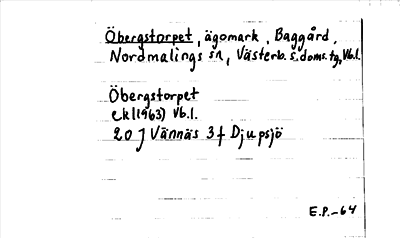 Öbergstorpet, ägomark, Baggård,
Nordmalings sn, Västerb. s. doms. tg, Vb.l.
Öbergstorpet
ek (1963) Vb.l.
20 J Vännäs 3 f Djupsjö
E.P.-64